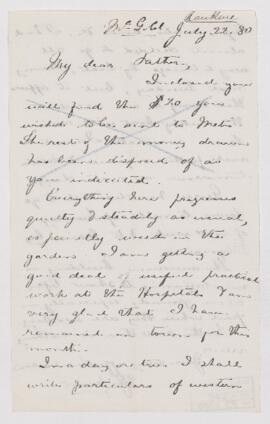 McG. Col
July 22. 80
My dear Father,
Inclosed you
will find the $20 you
wished to be sent to
The rest of the money drawn
has been disposed of as
you indicated.
Everything here progresses
quietly & steadily as usual,
especially weeds in the
gardens I am getting a
good deal of useful practical
work at the Hospital & am
very glad that I have
remained in town for this
month.
In a day or two I shall
write particulars of western